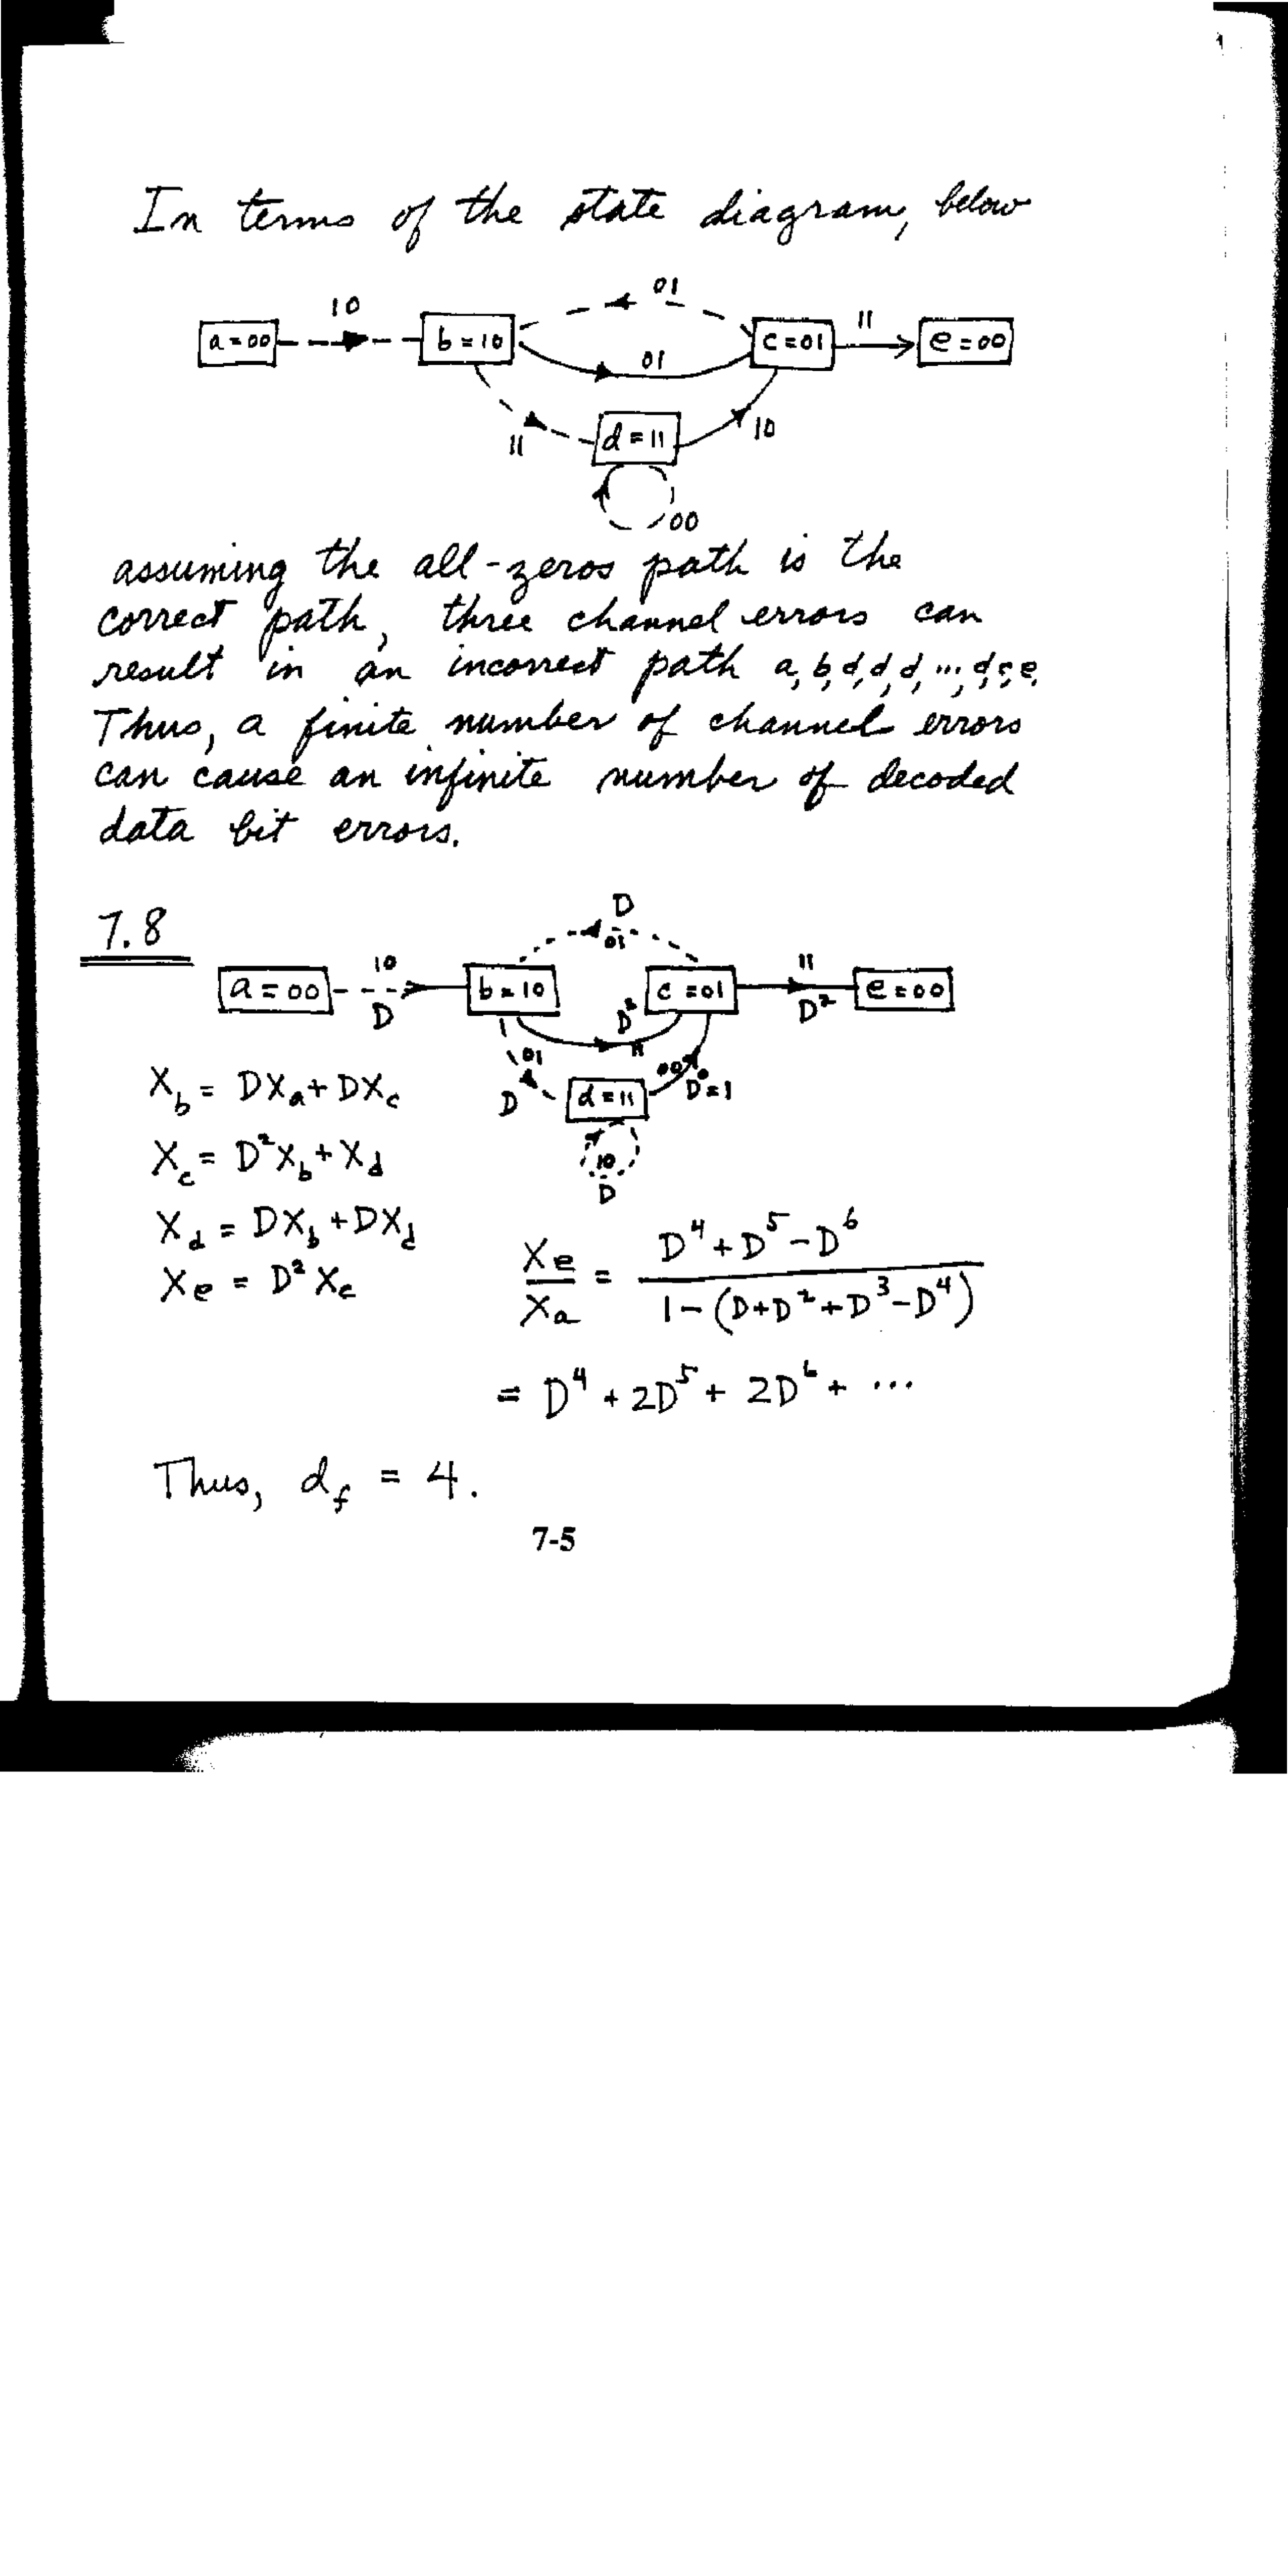 In terms of the state diagram, below
10
01
a = 00
b = 10
c = 01
11
e = 00
01
11
d = 11
10
00
assuming the all-zeros path is the
correct path, three channel errors can
result in an incorrect path a, b, d, d, d, ..., d, c, e.
Thus, a finite number of channel errors
can cause an infinite number of decoded
data bit errors.
7.8
D
01
10
11
a = 00
b = 10
c = 01
e = 00
D
D²
D²
11
01
00
D
d = 11
D⁰=1
10
D
X_b = DX_a + DX_c
X_c = D²X_b + X_d
X_d = DX_b + DX_d
X_e = D² X_c
X_e / X_a = (D⁴ + D⁵ - D⁶) / (1 - (D + D² + D³ - D⁴))
= D⁴ + 2D⁵ + 2D⁶ + ...
Thus, d_f = 4.
7-5